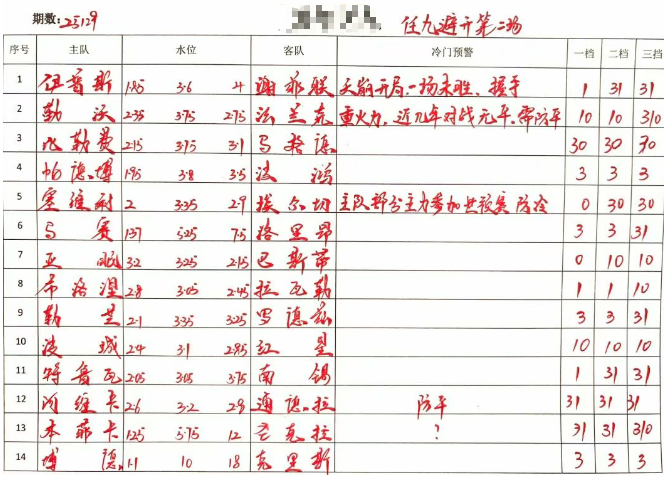 期数:25129 任九避开第二场
序号 主队 水位 客队 冷门预警 一档 二档 三档
1 伊普斯 1.85 3.6 4 谢菲联 天崩开局.一场未胜. 握手 1 31 31
2 勒沃 2.35 3.75 2.75 法兰克 重火力.近几年对战无平.需防平 10 10 310
3 比勒费 2.15 3.15 3.1 马格德 30 30 30
4 帕德博 1.95 3.8 3.5 波鸿 3 3 3
5 塞维利 2 3.35 2.9 埃尔切 主队部分主力参加世预赛 防冷 0 30 30
6 马赛 1.37 5.25 7.5 洛里昂 3 3 31
7 亚眠 3.2 3.25 2.15 巴斯蒂 0 10 10
8 布洛涅 2.8 3.05 2.45 拉瓦勒 1 1 10
9 勒芒 2.1 3.35 3.25 罗德兹 3 3 31
10 波城 2.4 3.1 2.85 红星 10 10 10
11 特鲁瓦 2.05 3.05 3.75 南锡 1 31 31
12 阿维卡 2.6 3.2 2.9 通德拉 防平 31 31 31
13 本菲卡 1.25 5.75 12 圣克拉 ? 31 31 310
14 博德 1.1 10 18 克里斯 3 3 3